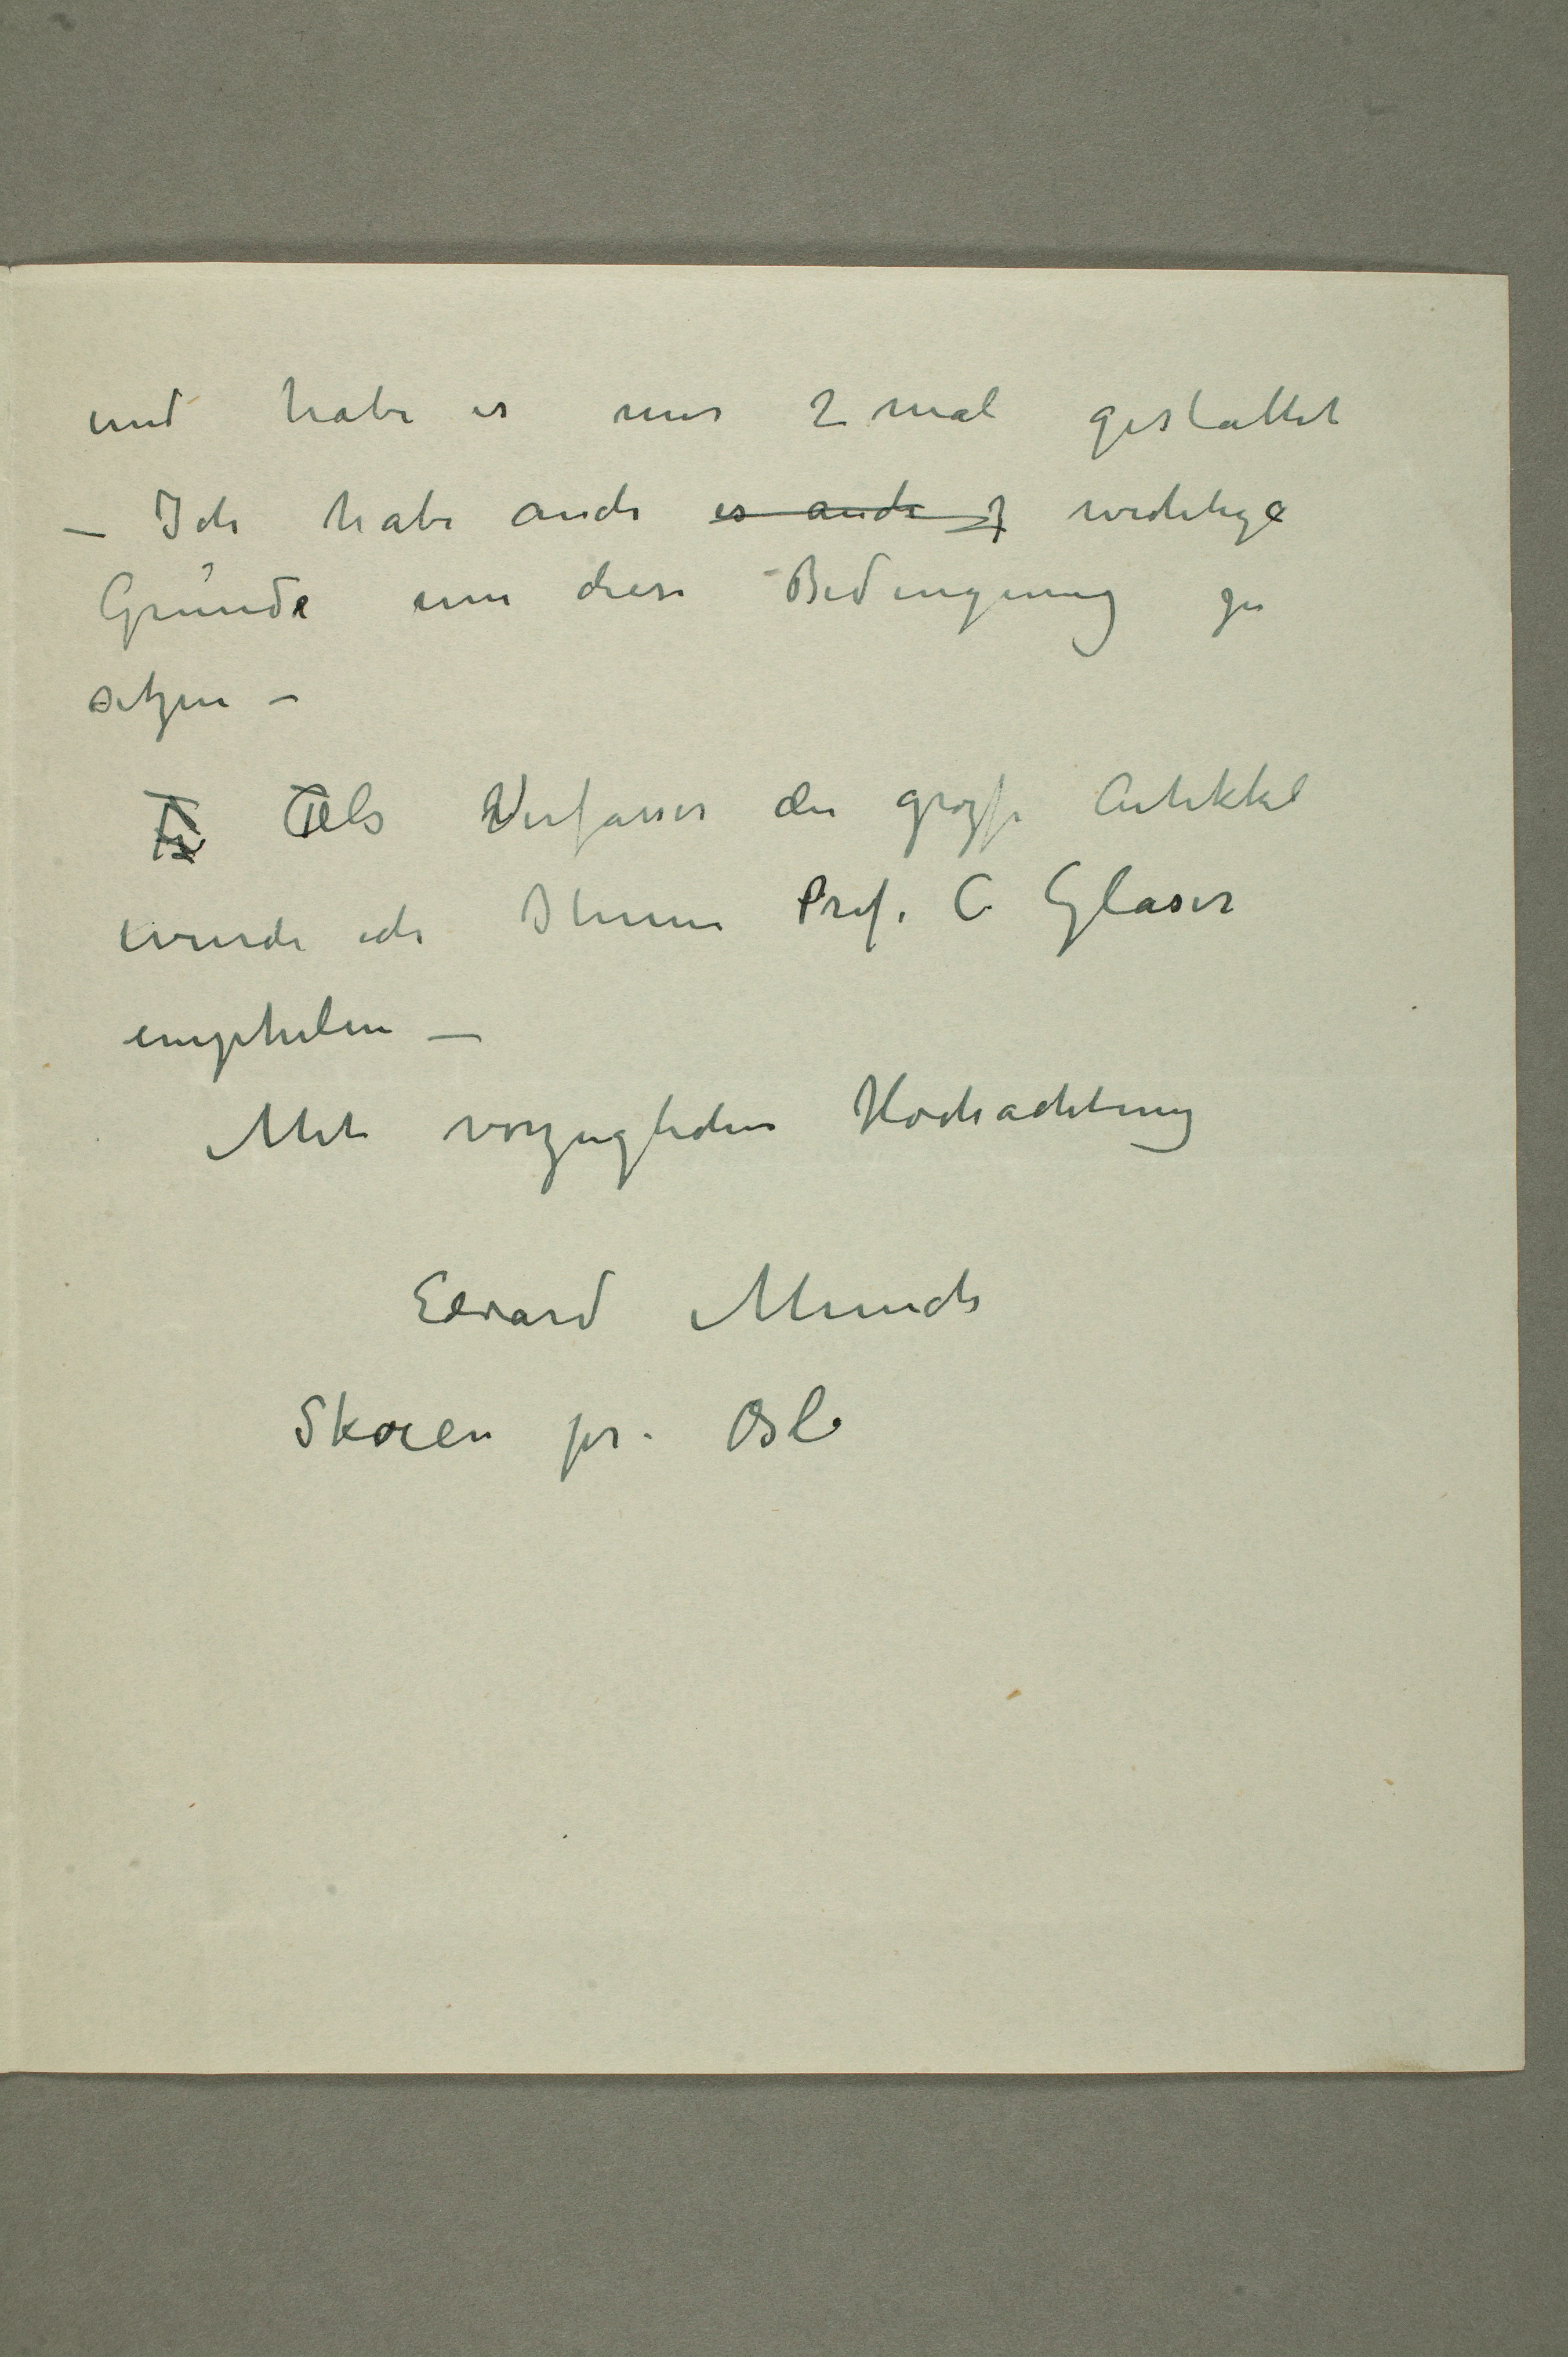 und habe es nur 2 mal gestattet
– Ich habe auch es auch wichtige
Gründe um diese Bedingung zu
setzen –
Als Verfasser der grozse Artikkel
wurde ich Ihnen Prof. C Glaser
emphelen –
Mit vorzuglichen Hochachtung
Edvard Munch
Skøien pr. Oslo